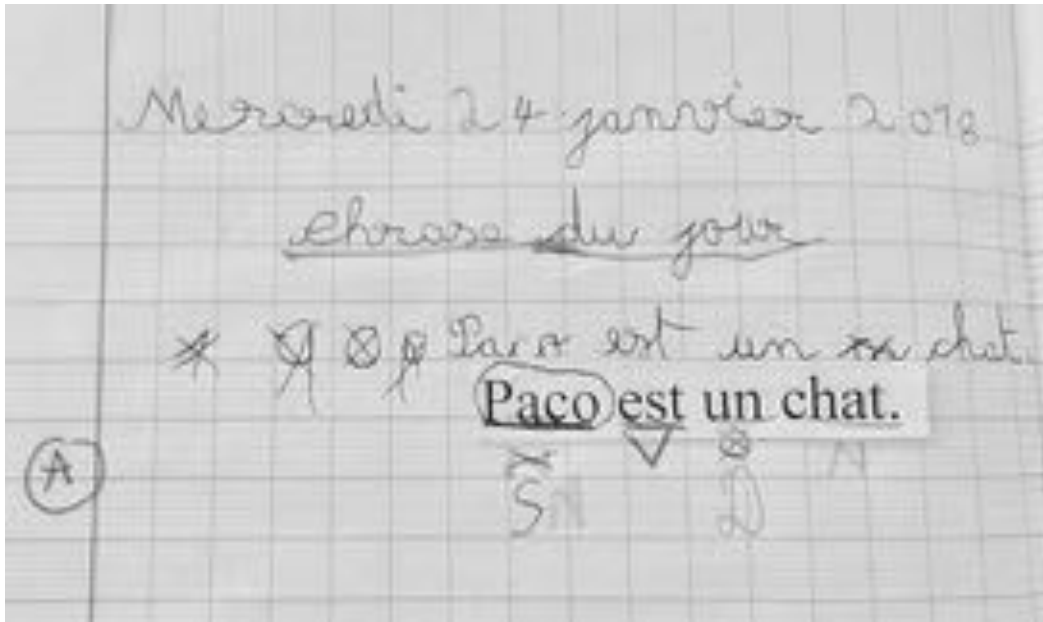 Mercredi 24 janvier 2018
Phrase du jour
Paco est un chat.
Paco est un chat.
A
V
S D N